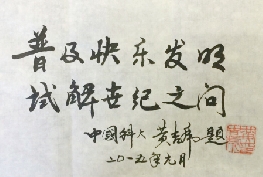 普及快乐发明
试解世纪之问
中國科大 黄志斌 题
二〇一五年九月